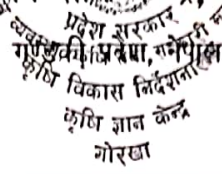 प्रदेश सरकार
गण्डकी प्रदेश, नेपाल
कृषि विकास निर्देशनालय
कृषि ज्ञान केन्द्र
गोरखा